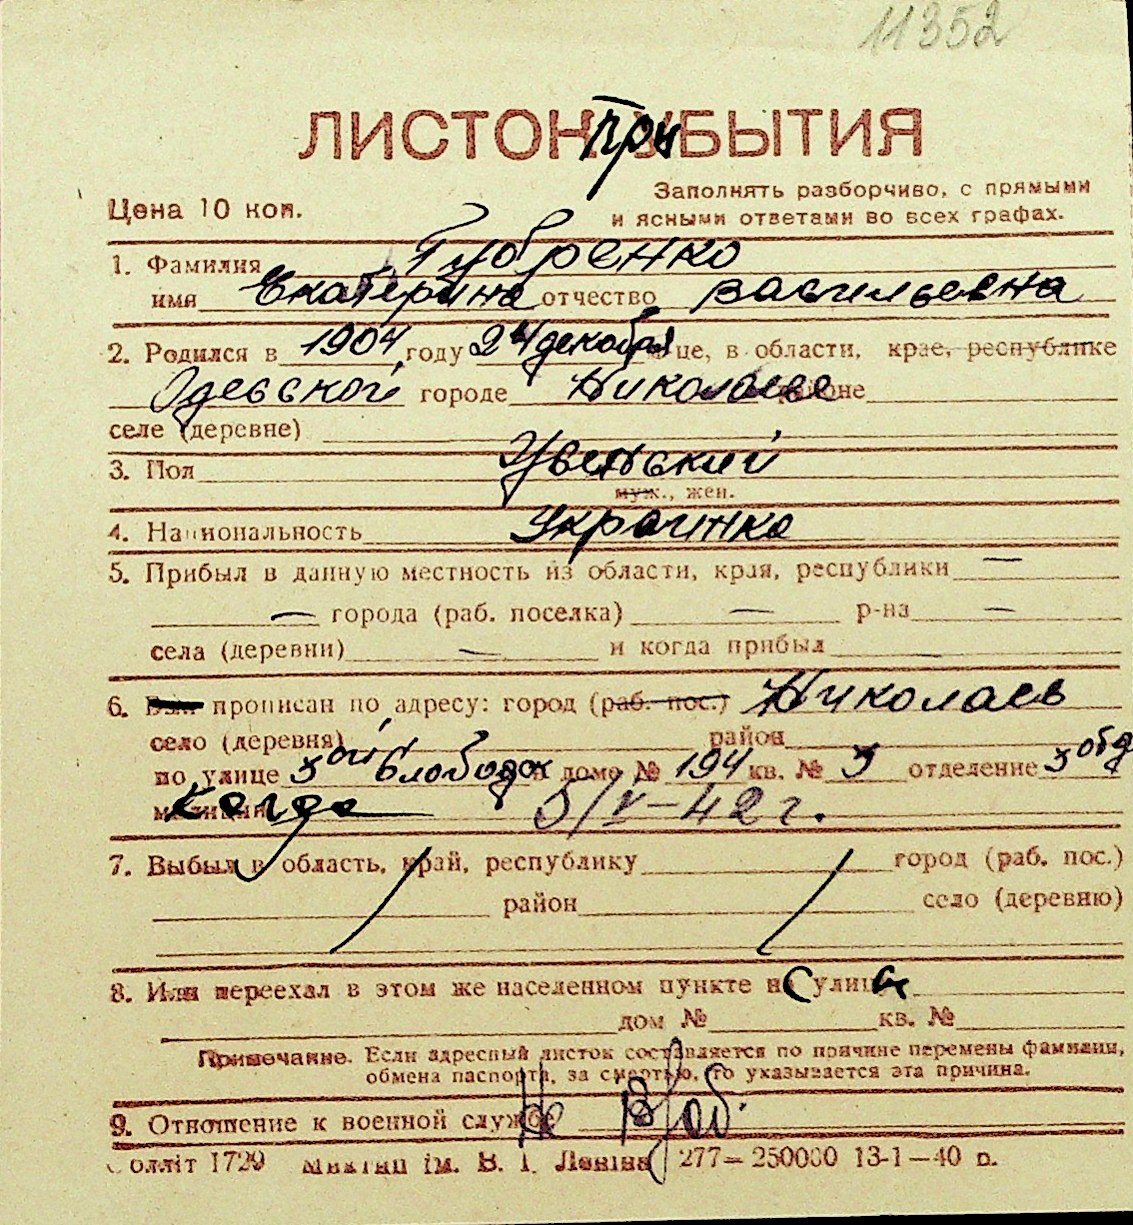 11352
ЛИСТОК При УБЫТИЯ
Цена 10 коп.
Заполнять разборчиво, с прямыми
и ясными ответами во всех графах.
1. Фамилия Губренко
имя Екатерина отчество Васильевна
2. Родился в 1904 году 24 декабря це, в области, крае, республике
Одесской городе Николаеве районе
селе (деревне)
3. Пол Женский
муж., жен.
4. Национальность Украинка
5. Прибыл в данную местность из области, края, республики —
— города (раб. поселка) — р-на —
села (деревни) — и когда прибыл —
6. прописан по адресу: город (раб. пос.) Николаев
село (деревня) район
по улице 3 ой Слободск дом № 194 кв. № 3 отделение 3
милиции Когда 5/V-42 г.
7. Выбыл в область, край, республику город (раб. пос.)
район село (деревню)
8. Или переехал в этом же населенном пункте на С улицы
дом № кв. №
Примечание. Если адресный листок составляется по причине перемены фамилии,
обмена паспорта, за смертью, то указывается эта причина.
9. Отношение к военной службе Не в/об.
олліт 1729 ім. В. І. Леніна 277—250000 13-1—40 р.